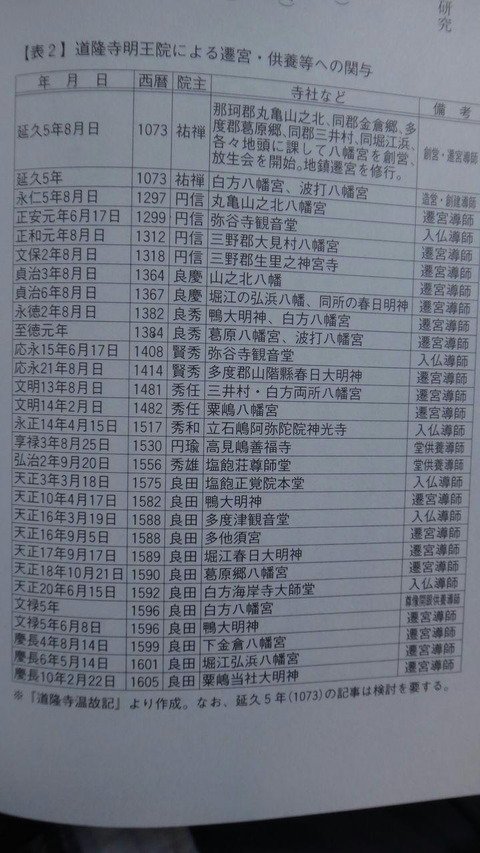 研究
【表2】道隆寺明王院による遷宮・供養等への関与
年月日 西暦 院主 寺社など 備考
延久5年8月日 1073 祐禅 那珂郡丸亀山之北、同郡金倉郷、多
度郡葛原郷、同郡三井村、同堀江浜、
各々地頭に課して八幡宮を創営、
放生会を開始。地鎮遷宮を修行。 創営・遷宮導師
延久5年 1073 祐禅 白方八幡宮、波打八幡宮 造営・創建導師
永仁5年8月日 1297 円信 丸亀山之北八幡宮 遷宮導師
正安元年6月17日 1299 円信 弥谷寺観音堂 入仏導師
正和元年8月日 1312 円信 三野郡大見村八幡宮 遷宮導師
文保2年8月日 1318 円信 三野郡生里之神宮寺 遷宮導師
貞治3年8月日 1364 良慶 山之北八幡 遷宮導師
貞治6年8月日 1367 良慶 堀江の弘浜八幡、同所の春日明神 遷宮導師
永徳2年8月日 1382 良秀 鴨大明神、白方八幡宮 遷宮導師
至徳元年 1384 良秀 葛原八幡宮、波打八幡宮 遷宮導師
応永15年6月17日 1408 賢秀 弥谷寺観音堂 入仏導師
応永21年8月日 1414 賢秀 多度郡山階縣春日大明神 遷宮導師
文明13年8月日 1481 秀任 三井村・白方両所八幡宮 遷宮導師
文明14年2月日 1482 秀任 粟嶋八幡宮 遷宮導師
永正14年4月15日 1517 秀和 立石嶋阿弥陀院神光寺 入仏導師
享禄3年8月25日 1530 円瑜 高見嶋善福寺 堂供養導師
弘治2年9月20日 1556 秀雄 塩飽荘尊師堂 堂供養導師
天正3年3月18日 1575 良田 塩飽正覚院本堂 入仏導師
天正10年4月17日 1582 良田 鴨大明神 遷宮導師
天正16年3月19日 1588 良田 多度津観音堂 入仏導師
天正16年9月5日 1588 良田 多他須宮 遷宮導師
天正17年9月17日 1589 良田 堀江春日大明神 遷宮導師
天正18年10月21日 1590 良田 葛原郷八幡宮 遷宮導師
天正20年6月15日 1592 良田 白方海岸寺大師堂 入仏導師
文禄5年 1596 良田 白方八幡宮 尊像開眼供養導師
文禄5年6月8日 1596 良田 鴨大明神 遷宮導師
慶長4年8月14日 1599 良田 下金倉八幡宮 遷宮導師
慶長6年5月14日 1601 良田 堀江弘浜八幡宮 遷宮導師
慶長10年2月22日 1605 良田 粟嶋当社大明神 遷宮導師
※「道隆寺温故記」より作成。なお、延久5年(1073)の記事は検討を要する。